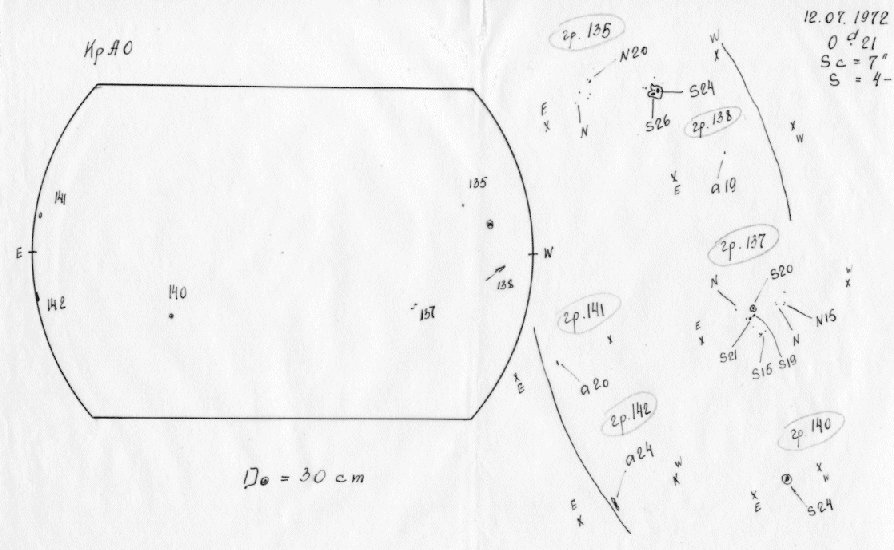 КрАО
141
E
142
140
135
138
137
W
D⊙ = 30 cm
12.07.1972
Sc = 7"
S = 4-
гр. 135
N20
S24
E
X
N
S26
W
X
гр. 138
X
W
X
E
a19
гр. 137
S20
N
W
X
E
X
N15
N
S21
S15
S19
гр. 141
X
X
E
a20
гр. 142
a24
W
X
E
X
гр. 140
X
W
X
E
S24